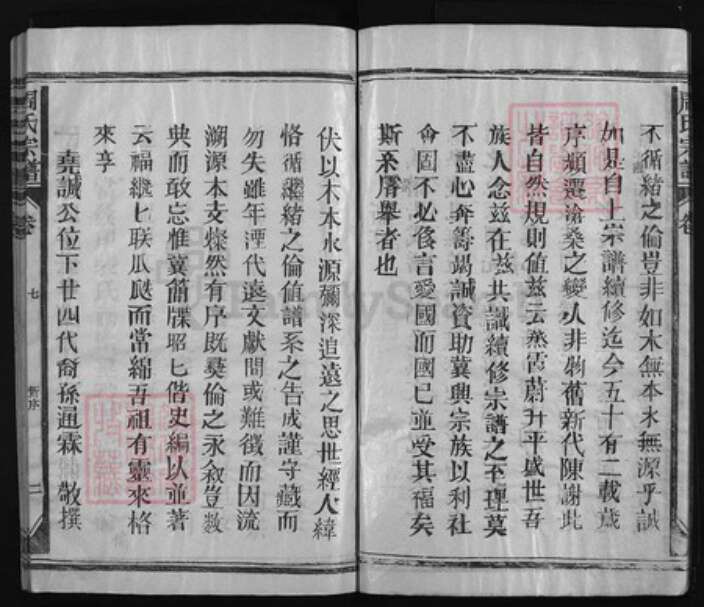 不循緒之倫豈非如木無本水無源乎誠
如是自上宗譜續修迄今五十有二載歲
序頻遷滄桑之變人非物舊新代陳謝此
皆自然規則值兹云蒸霞蔚升平盛世吾
族人念兹在兹共識續修宗譜之至理莫
不盡心奔籌竭誠資助冀興宗族以利社
會固不必侈言愛國而國已並受其福矣
斯柔屠舉者也
伏以木本水源彌深追遠之思世經人緯
恪循繼緒之倫值譜系之告成謹守藏而
勿失雖年湮代遠文獻間或難徵而因流
溯源本支燦然有序既彝倫之永敘豈數
典而敢忘惟冀簡牒昭匕偕史編以並著
云福繼匕联瓜瓞而當綿吾祖有靈來格
來享
堯誠公位下廿四代裔孫通霖 敬撰
周氏宗譜 卷
七
新序
二